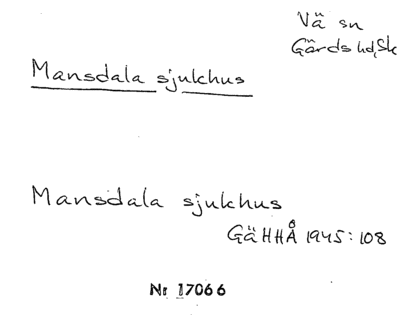 Vä sn
Gärds hd, Sk
Mansdala sjukhus
Mansdala sjukhus
GäHHÅ 1945:108
Nr 17066